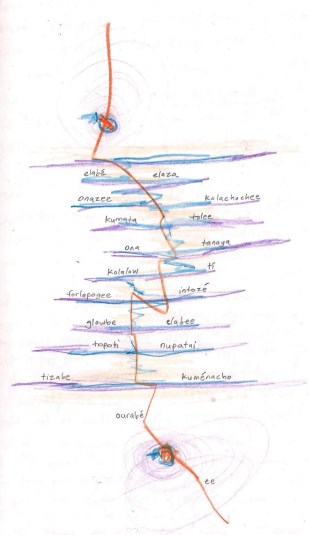 elabé elaza
onazee kalachachee
kumata tolee
ona tanaya
kalalaw ti
forlapagee intozé
gloube elabee
topoti nupatai
tizabe kuménacho
ourabé
ee